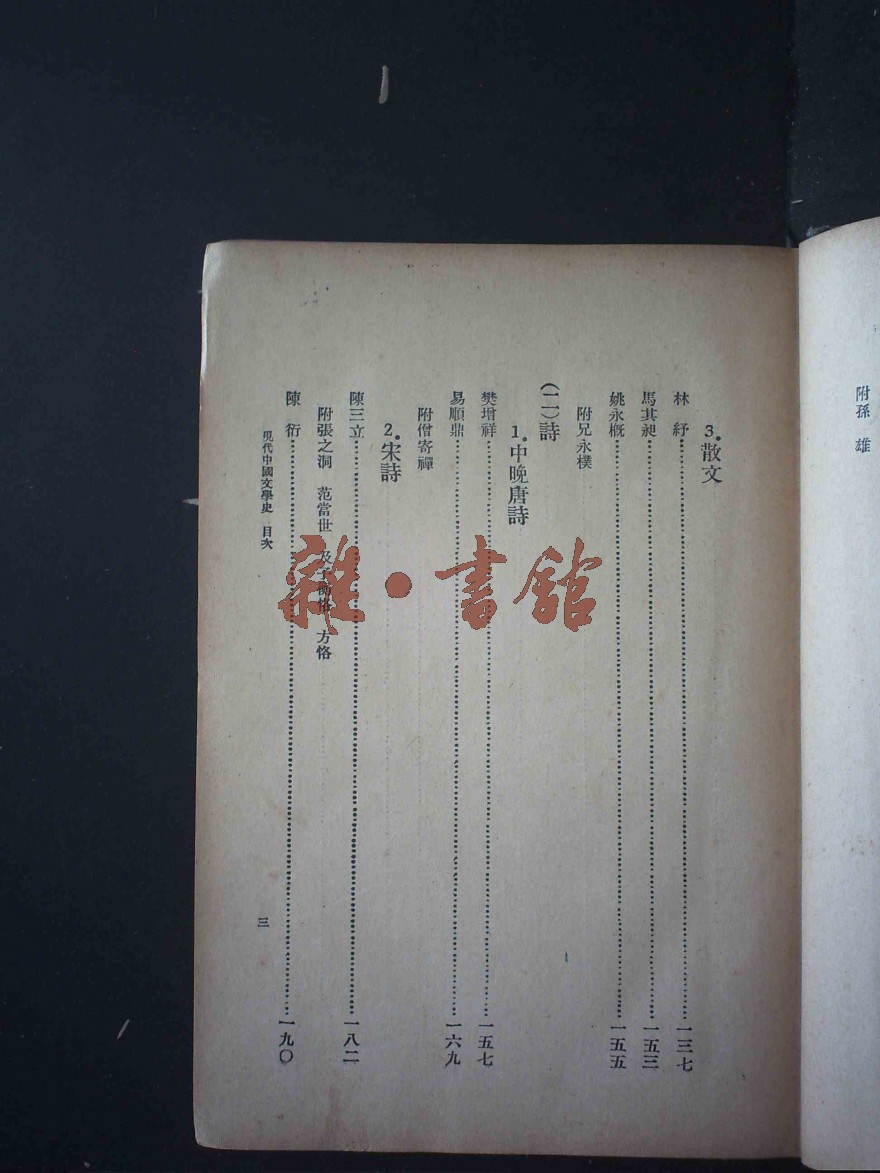 附孫　雄
3.散文
林　紓……一三七
馬其昶……一五三
姚永概……一五五
附兄永樸
(二)詩
1.中晚唐詩
樊增祥……一五七
易順鼎……一六九
附僧寄禪
2.宋詩
陳三立……一八二
附張之洞　范當世　及子衡恪　方恪
陳　衍……一九〇
現代中國文學史　目次
三
雜·書館